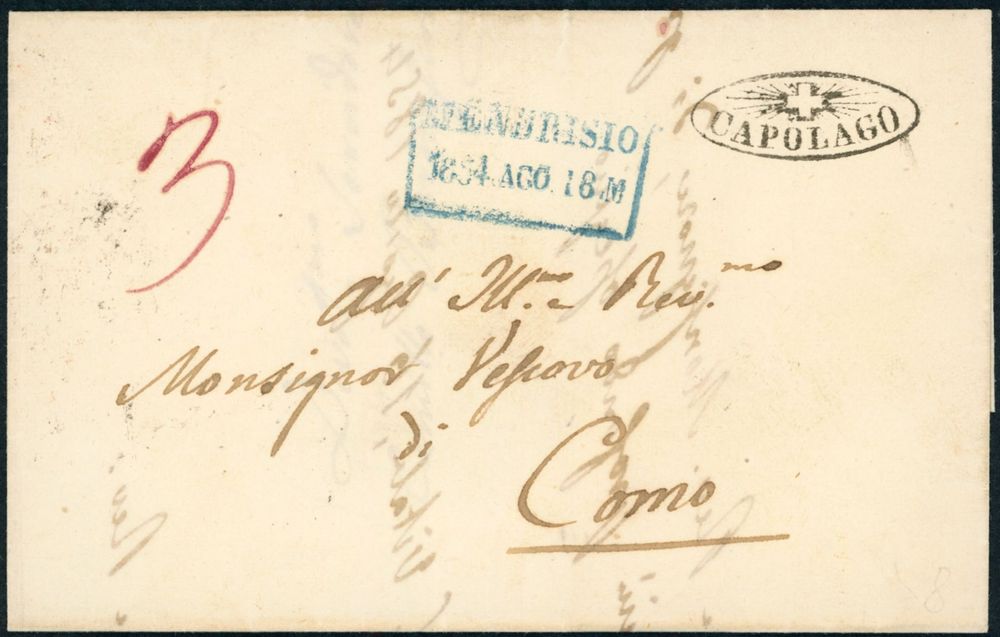 3
MENDRISIO
1854.AGO.18.M
CAPOLAGO
All' Ill.mo e Rev.mo
Monsignor Vescovo
di
Como
8